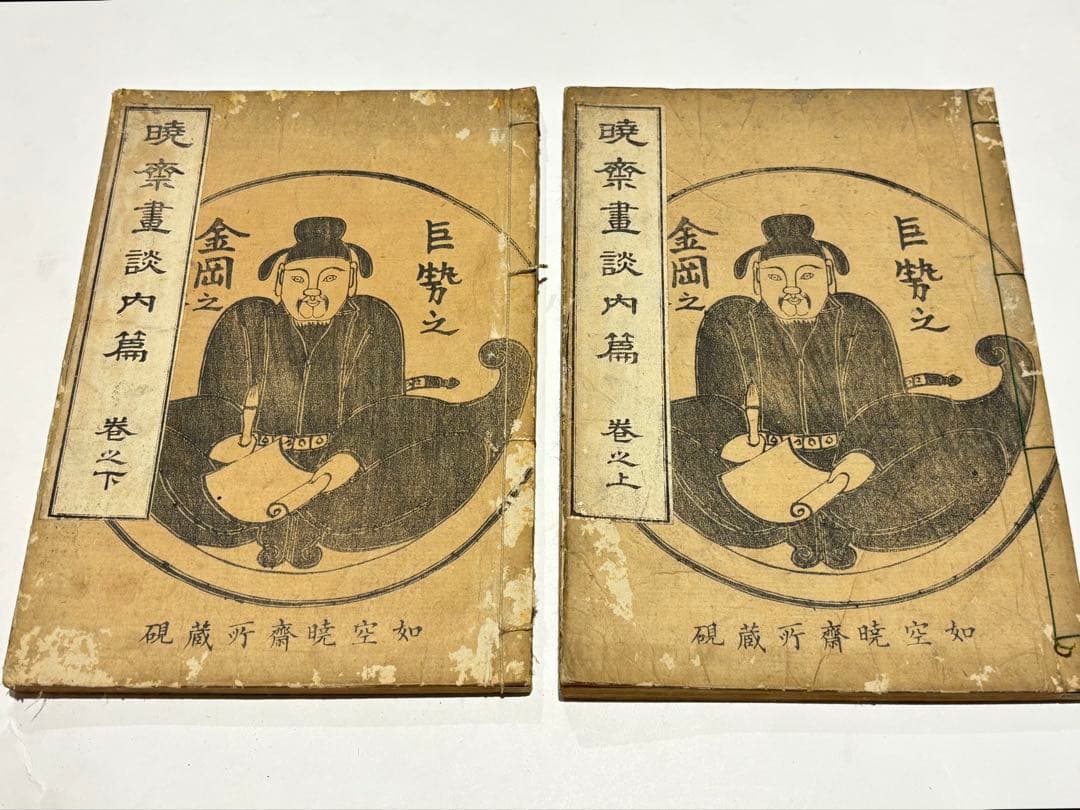 曉齋畫談内篇 卷之上
巨勢之
金岡之
如空曉齋所蔵硯
曉齋畫談内篇 卷之下
巨勢之
金岡之
如空曉齋所蔵硯